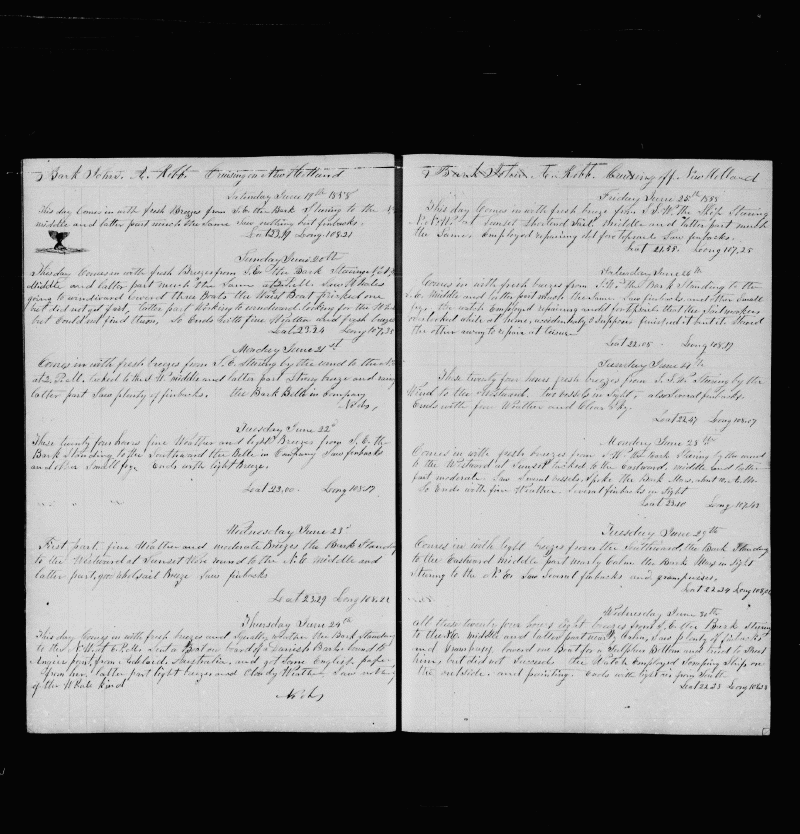 Bark John. A. Robb. Cruising on New Holland
Saturday June 19th 1858
This day Comes in with fresh Breezes from S.E. the Bark Stering to the
middle and latter part much the Same Saw nothing but finbacks.
Lat 23.49 Long 108.21
Sunday June 20th
This day Comes in with fresh Breezes from S.E. the Bark Stering
Middle and latter part much the Same at Saw Whales
going to windward Lowerd three Boats the Waist Boat pricked one
but did not get fast, latter part Working to windward looking for the Whales
but Could not find them, So Ends with fine Weather and fresh breezes
Lat 23.24 Long 107.35
Monday June 21st
Comes in with fresh breezes from S.E. Stering by the wind to the
at 2 P.M. tacked to the S W middle and latter part Strong breeze and
latter part Saw plenty of finbacks. the Bark Belle in Company
No obs,
Tuesday June 22d
These twenty four hours fine Weather and light Breezes from S.E. the
Bark Standing to the Southward the Belle in Company Saw finbacks
and other Small fry. Ends with light Breeze.
Lat 23.00 Long 108.17
Wednesday June 23d
First part, fine Weather and moderate Breezes the Bark Standing
to the Westward at Sunset Wore round to the N.E middle and
latter part, good Wholesail Breeze Saw finbacks
Lat 23.29 Long 108.22
Thursday June 24th
This day Comes in with fresh breezes and Squally weather the Bark Standing
to the N. West Sent a Boat on board of a Danish Bark bound to
from Adelaid, Australia, and got Some English papers
from her, latter part light breezes and Cloudy Weather Saw nothing
of the Whale kind
No obs,
Bark John. A. Robb. Cruising off New Holland
Friday June 25th 1858
This day Comes in with fresh breeze from S.S.W. the Ship Stering
N.N.W. at Sunset Shortend Sail. Middle and latter part much
the Same. Employed repairing old foretopsail Saw finbacks.
Lat 21.58. Long 107.25
Saturday June 26th
Comes in with fresh breezes from S.W. the Bark Standing to the
S.E. Middle and latter part much the Same. Saw finbacks, and other Small
fry, the watch employed repairing foretopsail that the Sailmakers
overlooked while at home, accidentaly I Suppose finished it but it Saved
the other away to repair at leisure
Lat 22.08 - Long 108.17
Sunday June 27th
These twenty four hours fresh breezes from S.S.W. Stering by the
Wind to the Westward. two vessels in Sight, also Several finbacks.
Ends with fine Weather and Clear Sky.
Lat 22.47 Long 108.07
Monday June 28th
Comes in with fresh breezes from S.W. the Bark Stering by the wind
to the Westward at Sunset tacked to the Eastward, middle and latter
part moderate. Saw Several vessels. Spoke the Bark
So Ends with fine Weather. Several finbacks in Sight
Lat 23.20 Long 107.43
Tuesday June 29th
Comes in with light breezes from the Southward, the Bark Standing
to the Eastward middle part nearly Calm the Bark in Sight
Stering to the Saw Several finbacks, and grampuses,
Lat 22.24 Long 108.
Wednesday June 30th
all these twenty four hours light breezes from S.E. the Bark Stering
to the middle and latter part nearly Calm, Saw plenty of finbacks
and Grampuses, Lowerd one Boat for a Sulphur Bottom and tried to Shoot
him, but did not Succeed. the Watch Employed Scraping Ship on
the outside, and painting. Ends with light airs from South
Lat 22.23 Long 108.28